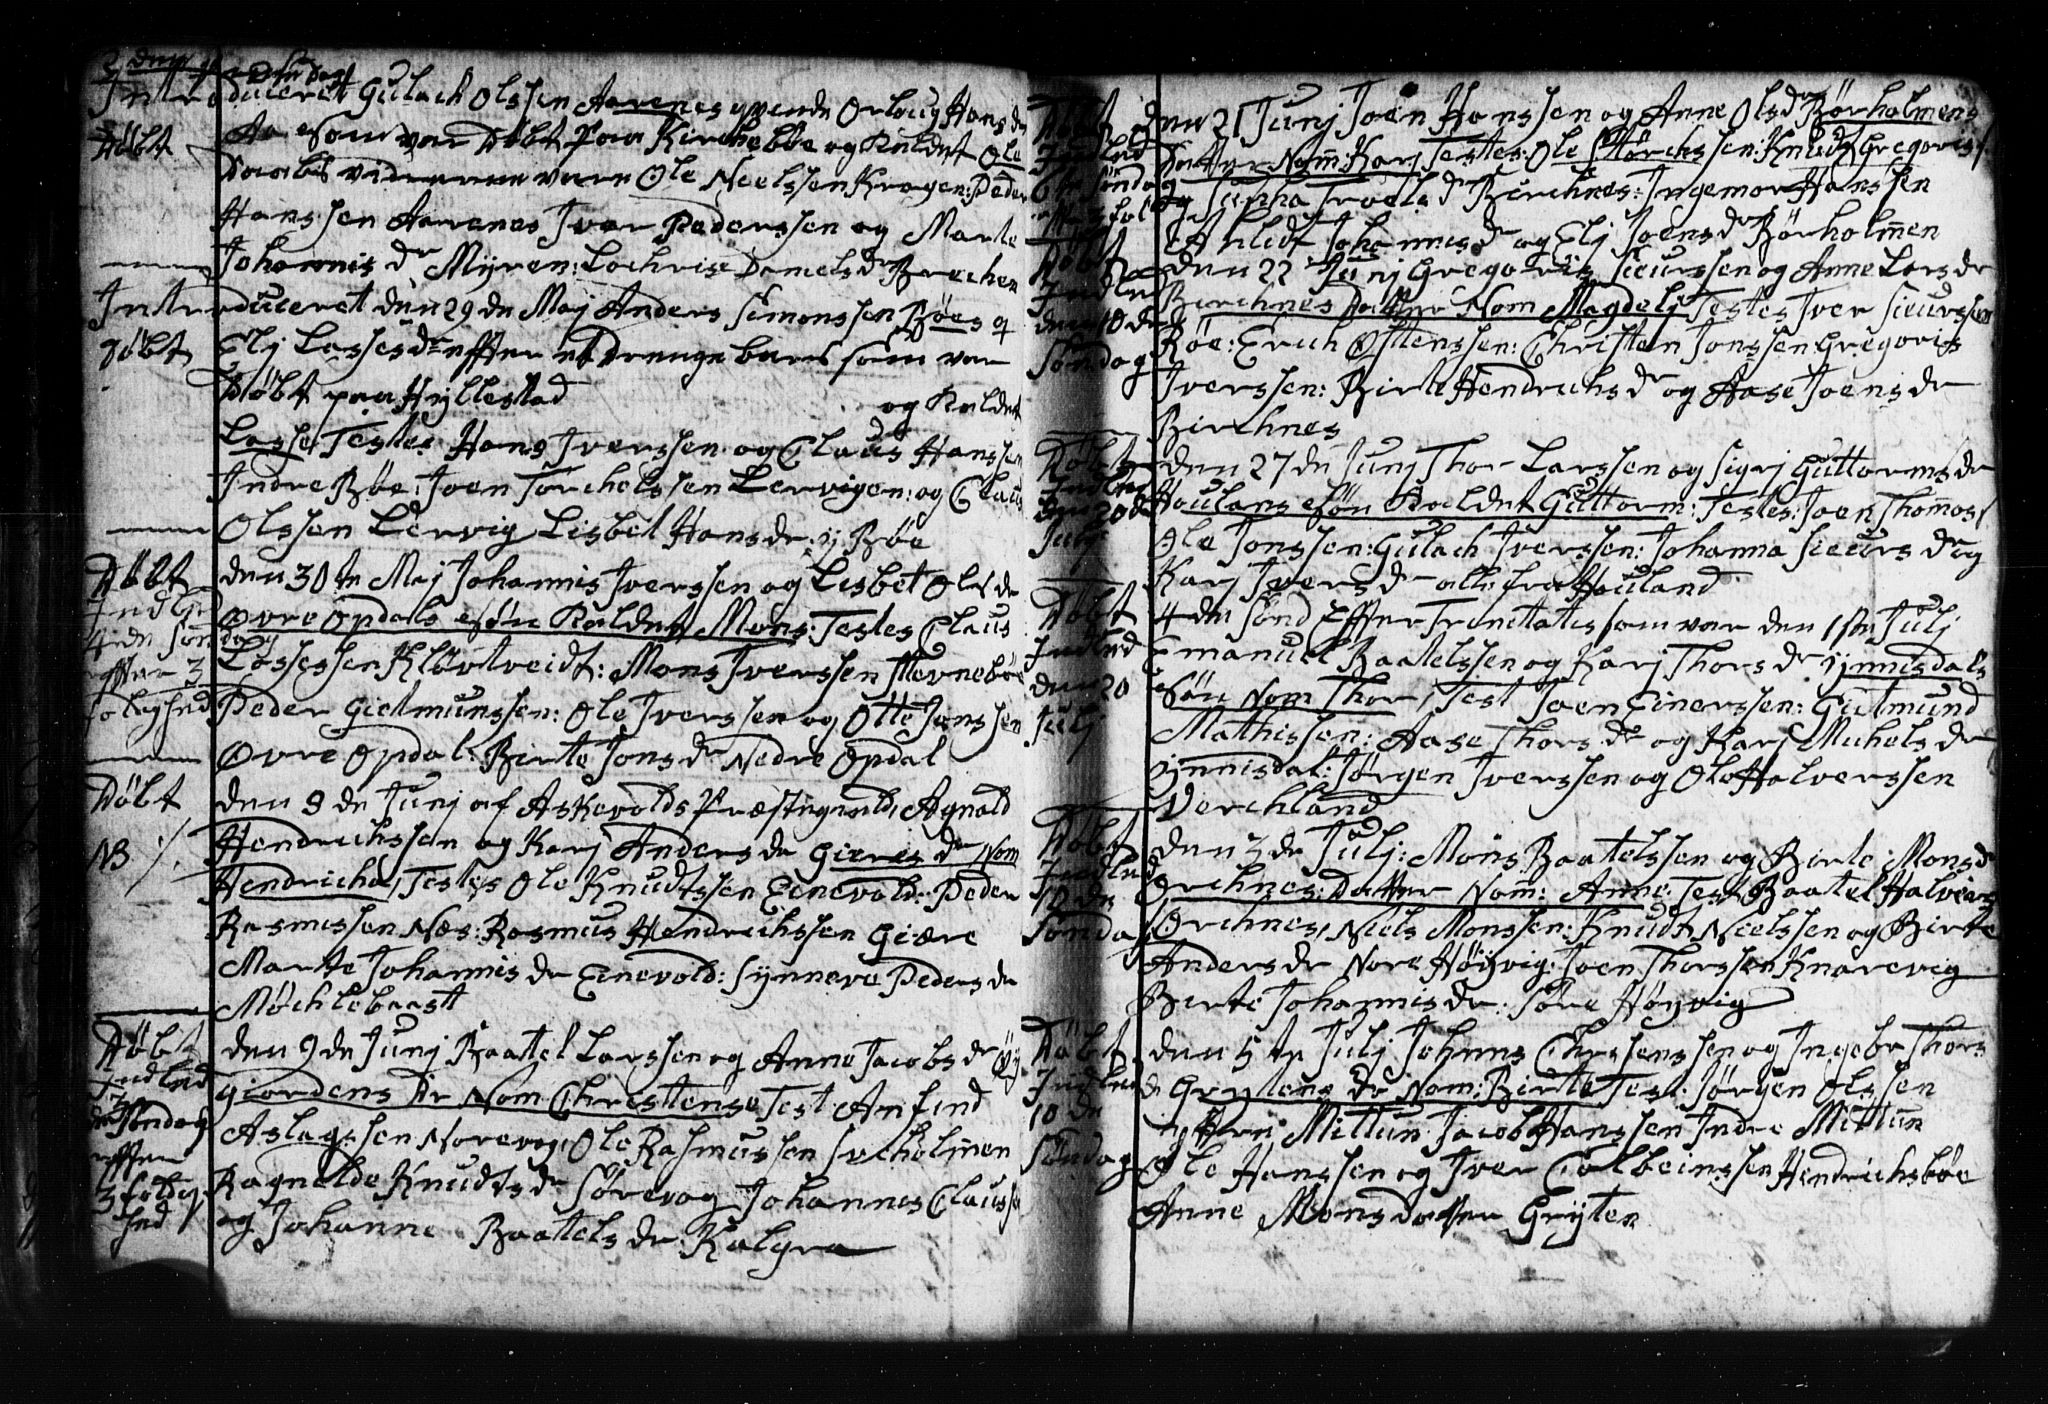 Introduceret Gulach Olssen Aarenes
Døbt
som var Døbt paa Kirchebøe og Kaldet Ole
vare Ole Nielssen Kragen: Peder
Hanssen Aarenes Iver Pederssen og Marte
Johannis dr Myren:
Introduceret den 29 de Maj Anders Simonssen Bøes
Døbt
Elj Lasses dr effter et Drenge barn som var
Døbt paa Hyllestad
og Kaldet
Lasse Testes Hans Iverssen og Claus Hanssen
Indre Bøe: Joen Torchelssen Lervigen: og Claus
Olssen Lervig Lisbet Hans dr: Bøe
Døbt
Indled
4 de Søndag
effter 3
foldighed
den 30 te Maj Johannis Iverssen og Lisbet Ols dr
Øvre Opdals Søn Kaldet Mons: Testes Claus
Lassessen Kløvtveidt: Mons Iverssen
Peder Gietmunssen: Ole Iverssen og Otte Jonssen
Øvre Opdal: Birte Jons dr Nedre Opdal
Døbt
NB
den 8 de Junj af Askevolds Præstegield, Agnald
Hendrichssen og Karj Anders dr Gieres dr Nom
Hendricha, Testes Ole Knudtssen Eenevold: Peder
Rasmussen Næs: Rasmus Hendrichssen Giere
Marte Johannis dr Eenevold: Synneve Peders dr
Møchlebaast
Døbt
Indled
3
Søndag
effter
3 foldig
hed
den 9 de Junj Baatel Larssen og Anne Jacobs dr Øy
giordens Dr Nom Christense Test Anfind
Aslagssen Norevog, Ole Rasmussen
Ragnilde Knudts dr Sørevog Johannes Claussen
og Johanne Baatels dr Kalgra
Døbt
Indled
6te Søndag
den 21 Junj Joen Hanssen og Anne Ols dr Børholmens
Datter Nom: Karj Testes: Ole Størchssen: Knudt Gregoriss.
og Troels dr Birchnes: Ingemor Hanssen
Johannis dr og Elj Joens dr Børholmen
Døbt
Indled
den 10 de
Søndag
den 22 Junj Gregoris Sieurssen og Anne Lars dr
Birchnes Datter Nom Magdelj Testes Iver Sieurssen
Bøe: Erich Ostenssen: Christen Jonssen Gregoris
Iverssen: Birte Hendrichs dr og Aase Joens dr
Birchnes
Døbt
Indled
den 20 de
Julj
den 27 de Junj Thor Larssen og Sigrj Guttorms dr
Houlans Søn Kaldet Guttorm: Testes: Joen Thomos
Ole Jonssen: Gulach Iverssen: Johanna Sieurs dr og
Karj Ivers dr alle fra Houland
Døbt
Indled
den 20
Julj
4 de Sønd Effter Trinitatis som var den 1ste Julj
Emanuel Baatelssen og Karj Thors dr Ynnisdals
Søn Nom Thor, Test Joen Einerssen: Gietmund
Mathissen: Aase Thors dr og Karj Michels dr
Ynnisdal: Jørgen Iverssen og Ole Halverssen
Verchland
Døbt
Indled
10 de
Søndag
den 3 de Julj: Mons Baatelssen og Birte Mons dr
Orchnes: Datter Nom: Anne: Test Baatel Halvers
Orchnes, Niels Monssen: Knudt Nielssen og Birte
Anders dr Nore Høyvig: Joen Thorssen Knarevig
Birte Johannis dr: Søre Høyvig
Døbt
Indled
10 de
Søndag
den 5 te Julj Johans og Ingebr Thors
dr Grytens Dr Nom: Birte Test: Jørgen Olssen
Mittun Jacob Hanssen Indre Mittun
Ole Hanssen og Iver Colbeinssen Hendrichsbøe
Anne Mons datter Gryten